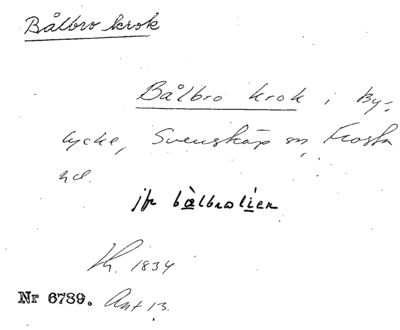 Bålbro krok
Bålbro krok, By-
lycke, Svensköp sn, Frosta
hd.
jfr bålbrolien
Kh. 1834
Nr 6789. Ant 13.